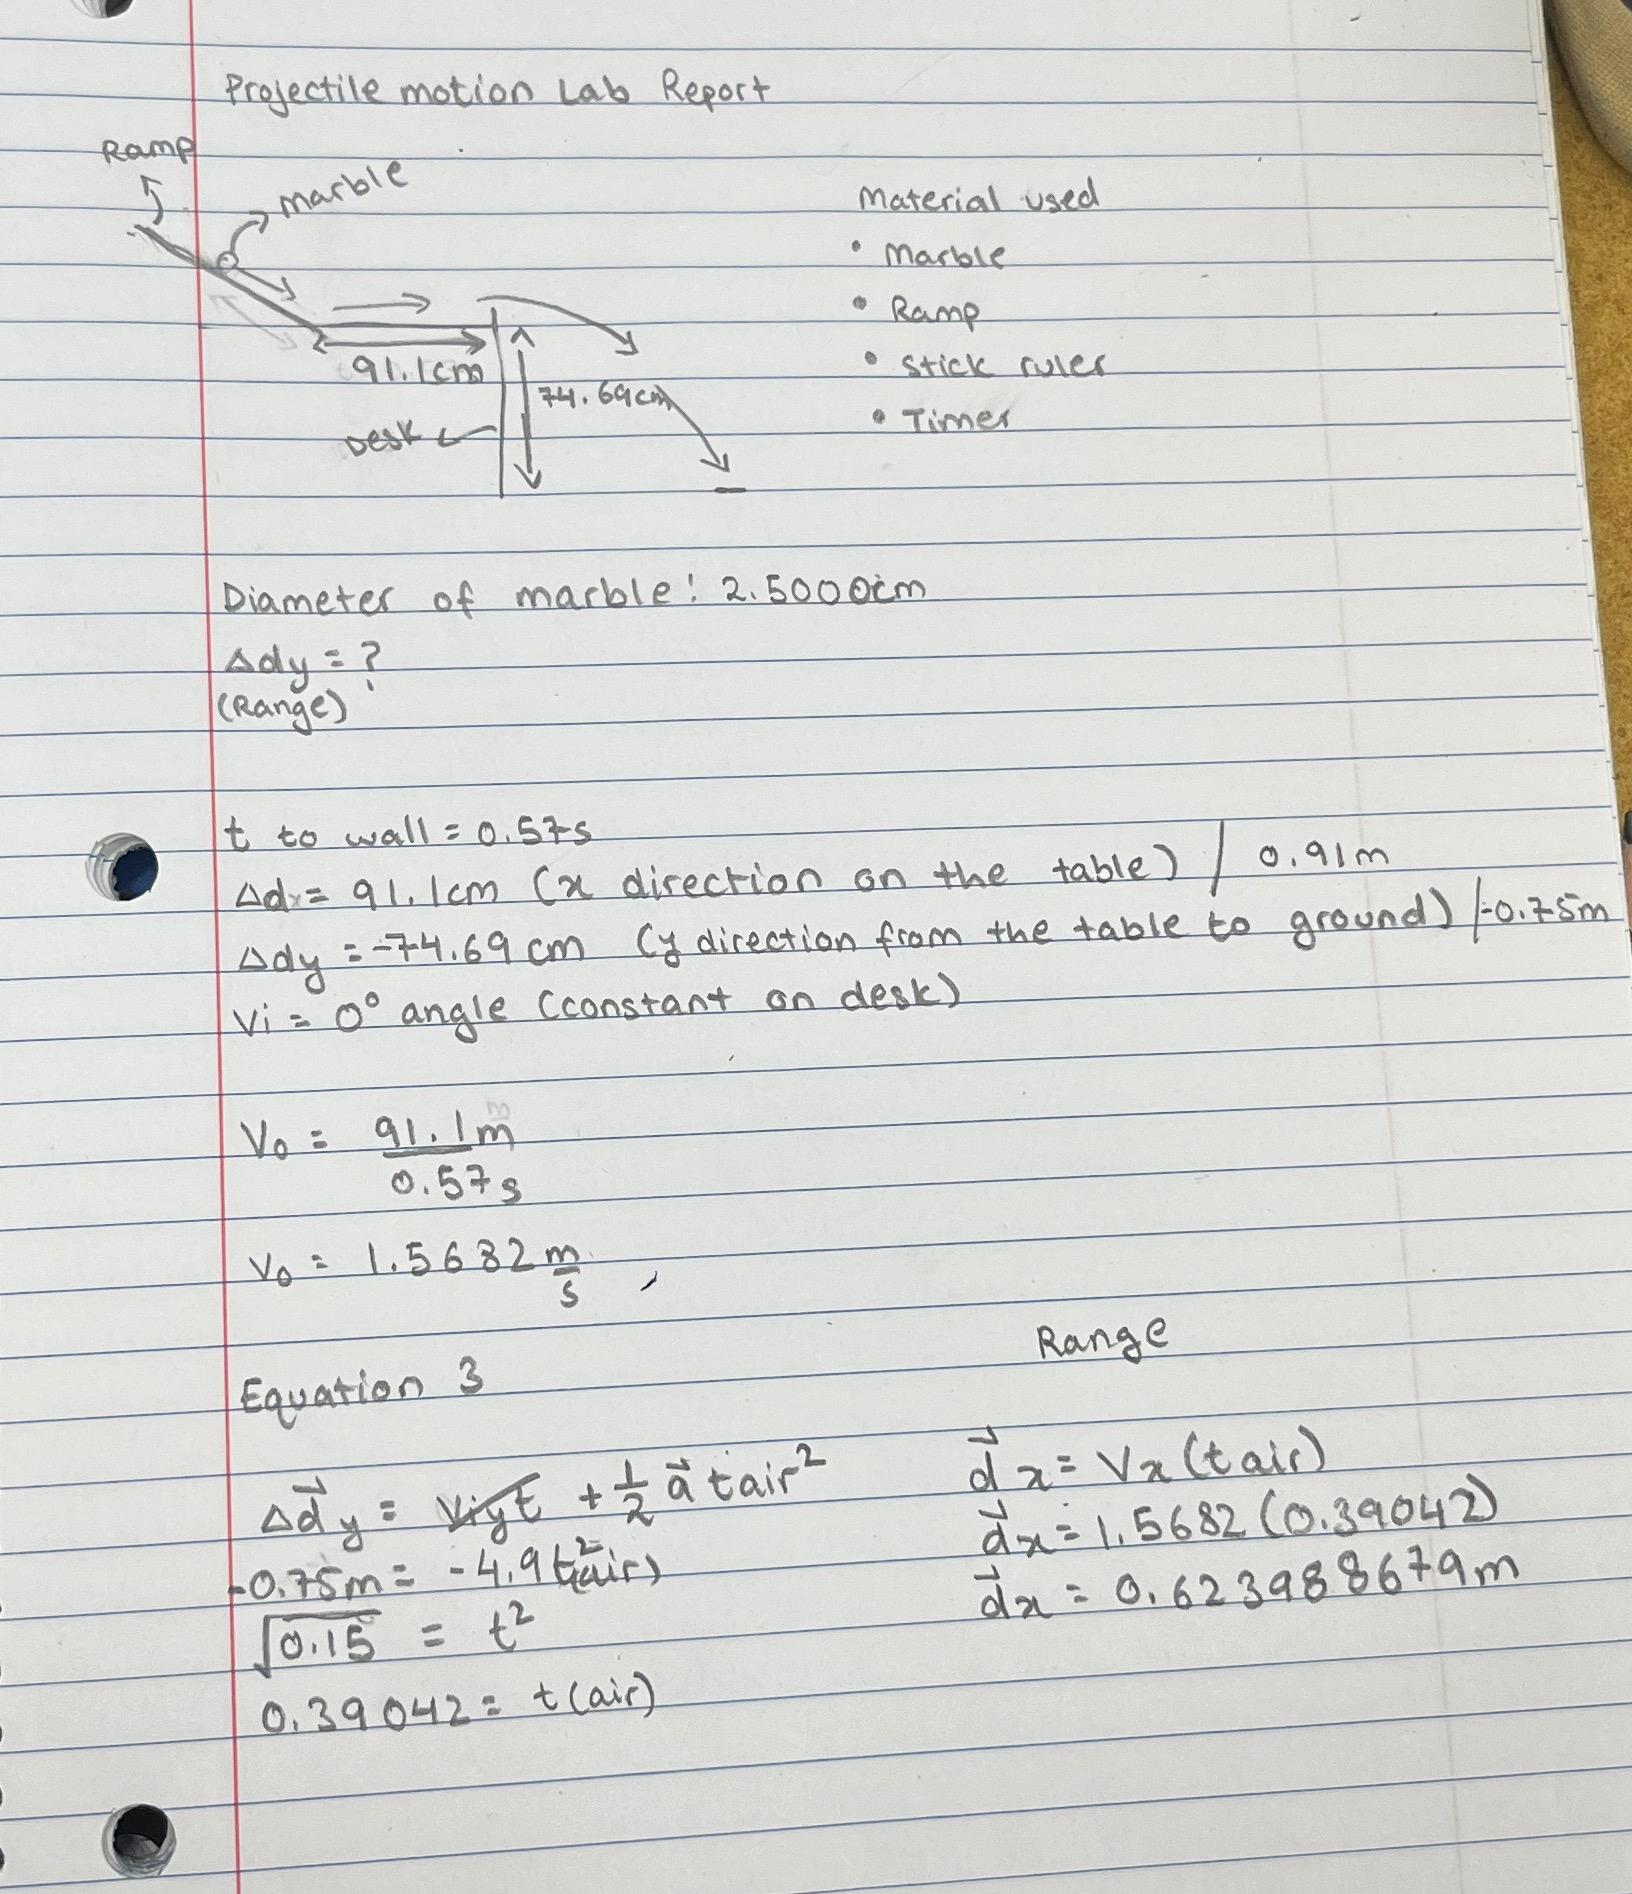 Projectile motion Lab Report
Ramp
marble
91.1cm
74.69cm
Desk
Material used
• Marble
• Ramp
• stick ruler
• Timer
Diameter of marble: 2.5000cm
Δdy = ?
(Range)
t to wall = 0.57s
Δdx = 91.1cm (x direction on the table) / 0.91m
Δdy = -74.69 cm (y direction from the table to ground) /-0.75m
Vi = 0° angle (constant on desk)
V₀ = 91.1m
0.57s
V₀ = 1.5682 m/s
Equation 3
Δd⃗y = Viyt + 1/2 a⃗ tair²
-0.75m = -4.9 t²(air)
√0.15 = t²
0.39042 = t(air)
Range
d⃗x = Vx (tair)
d⃗x = 1.5682 (0.39042)
d⃗x = 0.623988679m